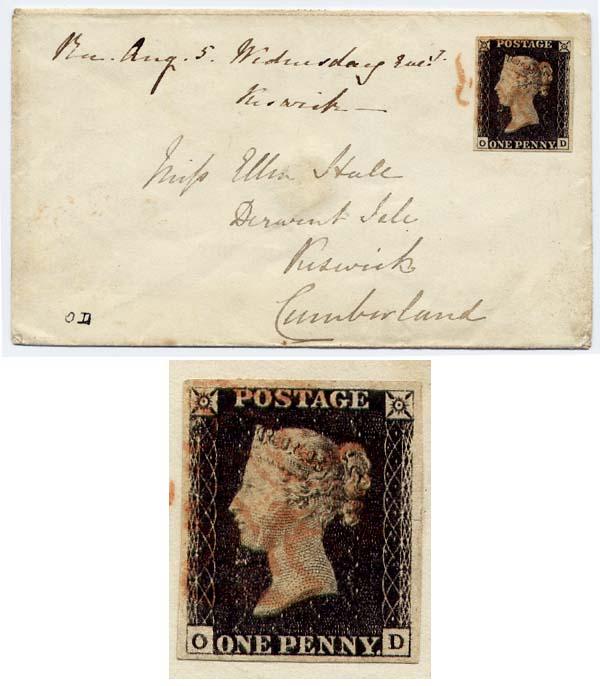 POSTAGE
Aug. 5. Wednesday
Keswick —
O ONE PENNY D
Miss Ellen Hall
Derwent Isle
Keswick
Cumberland
O D
POSTAGE
O ONE PENNY. D